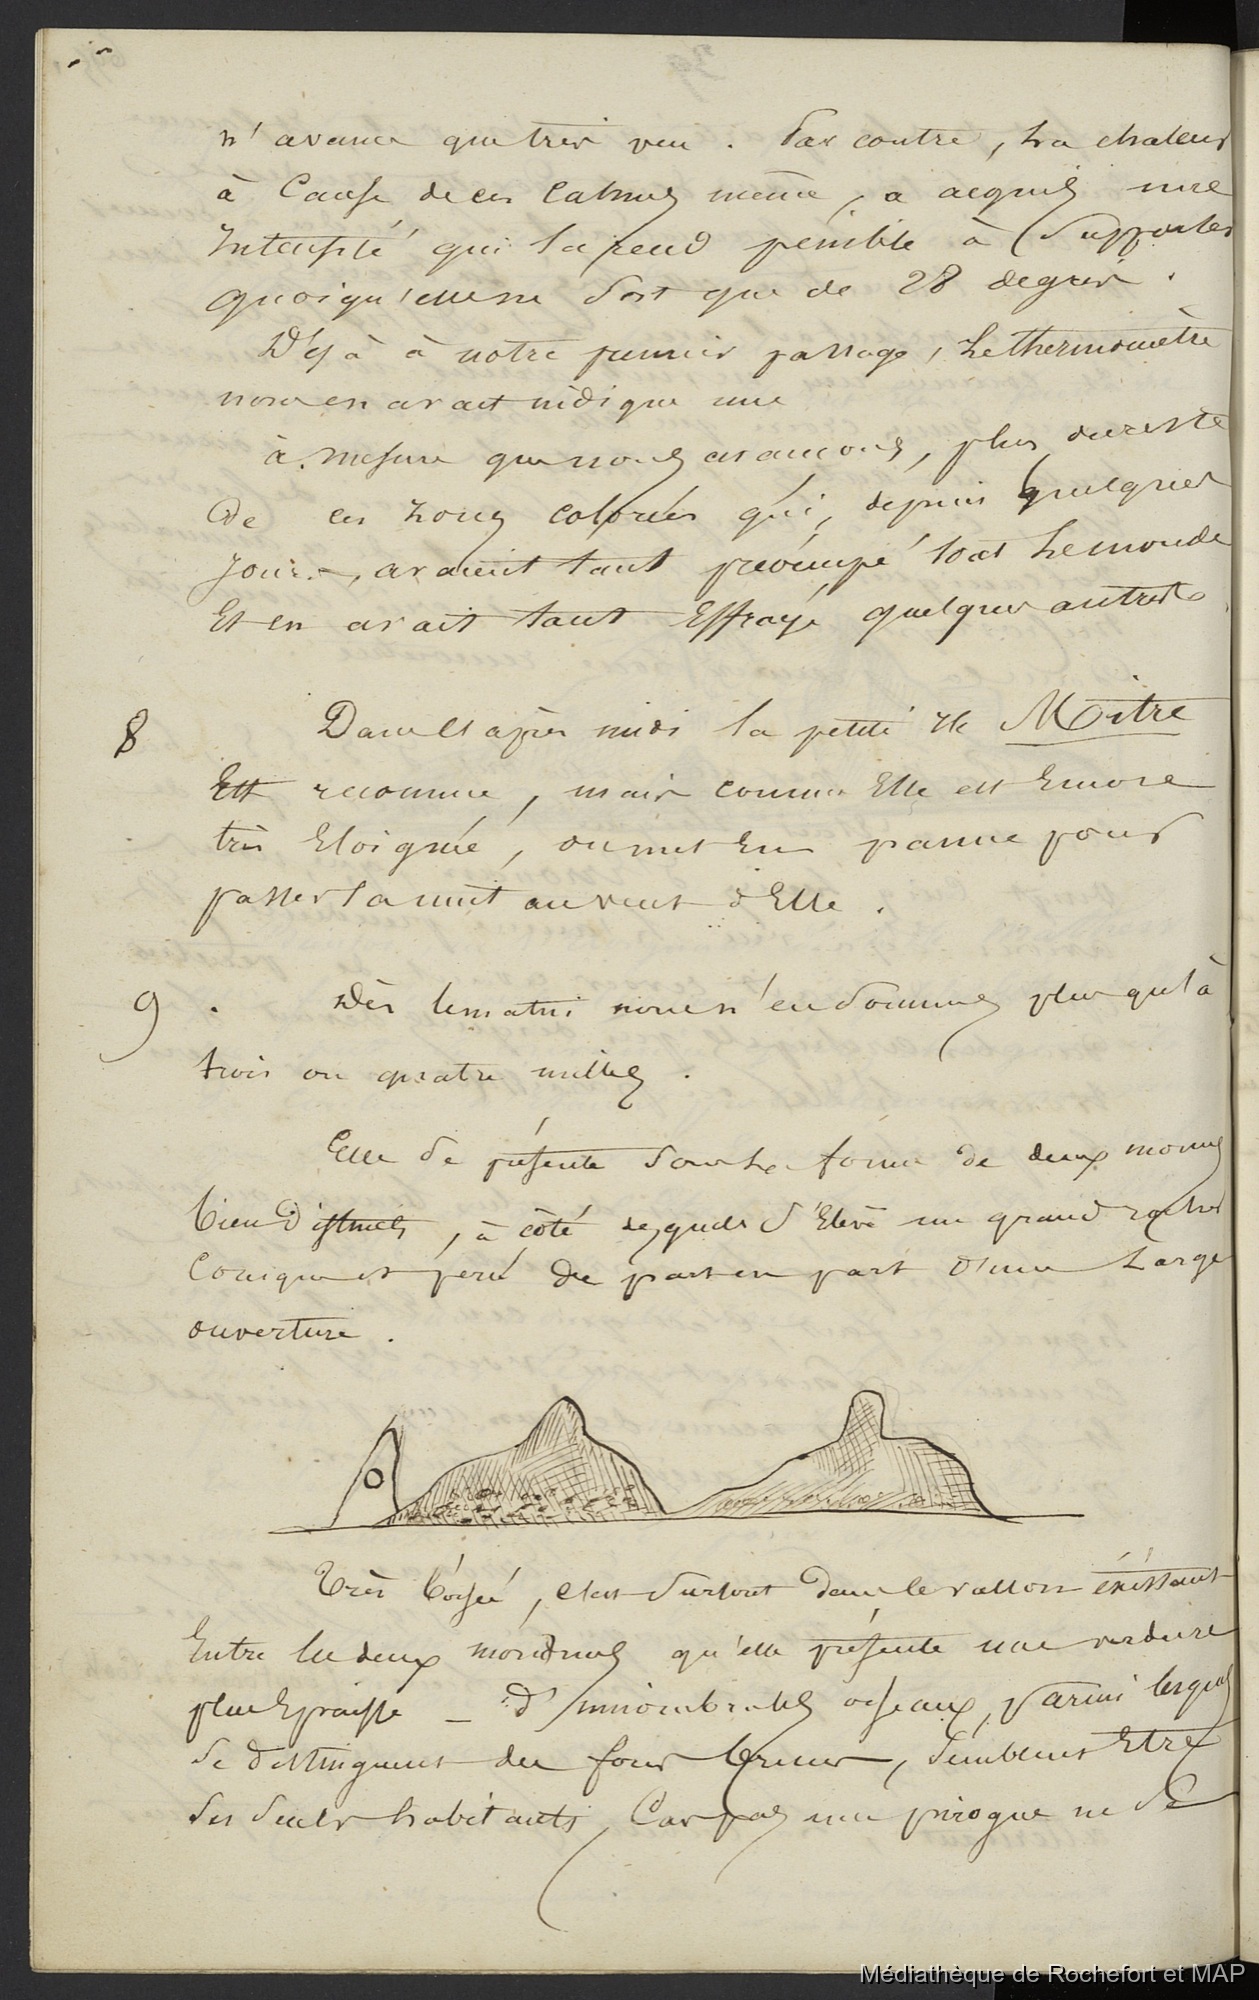 n'avance que très peu. Par contre, la chaleur
à Cause de ces Calmes même, a acquis une
Intensité qui la rend pénible à Supporter
quoiqu'elle ne soit que de 28 degrés.
Déjà à notre premier passage, Le thermomètre
nous en avait indiqué une
à mesure que nous avançons, plus du reste
de ces zones colorées qui, depuis quelques
jours, avaient tant préoccupé tout Le monde
Et en avait tant Effrayé quelques autres
8 Dans l'après midi la petite île Mitre
Est reconnue, mais comme Elle est Encore
très Eloignée, on met En panne pour
passer la nuit au vent d'Elle.
9. Dès le matin nous n'en sommes plus qu'à
trois ou quatre milles.
Elle se présente sous La forme de deux mornes
bien distincts, à côté desquels s'Elève un grand rocher
Conique et percé de part en part d'une Large
ouverture.
Très boisée, c'est surtout dans le vallon éxistant
Entre les deux mornes qu'elle présente une verdure
plus Epaisse _ d'innombrables oiseaux, parmi lesquels
se distinguent des fous bruns, semblent Etre
ses seuls habitants, Car pas une pirogue ne se
Médiathèque de Rochefort et MAP